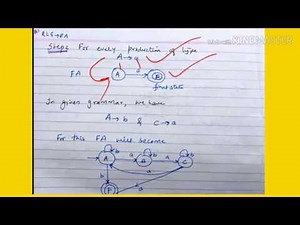 RLG → FA
Step1 For every production of type
A → a
FA
A a B
final state
In given grammar, we have
A → b & C → a
For this FA will become
b b b
A a B a C
b a a
F